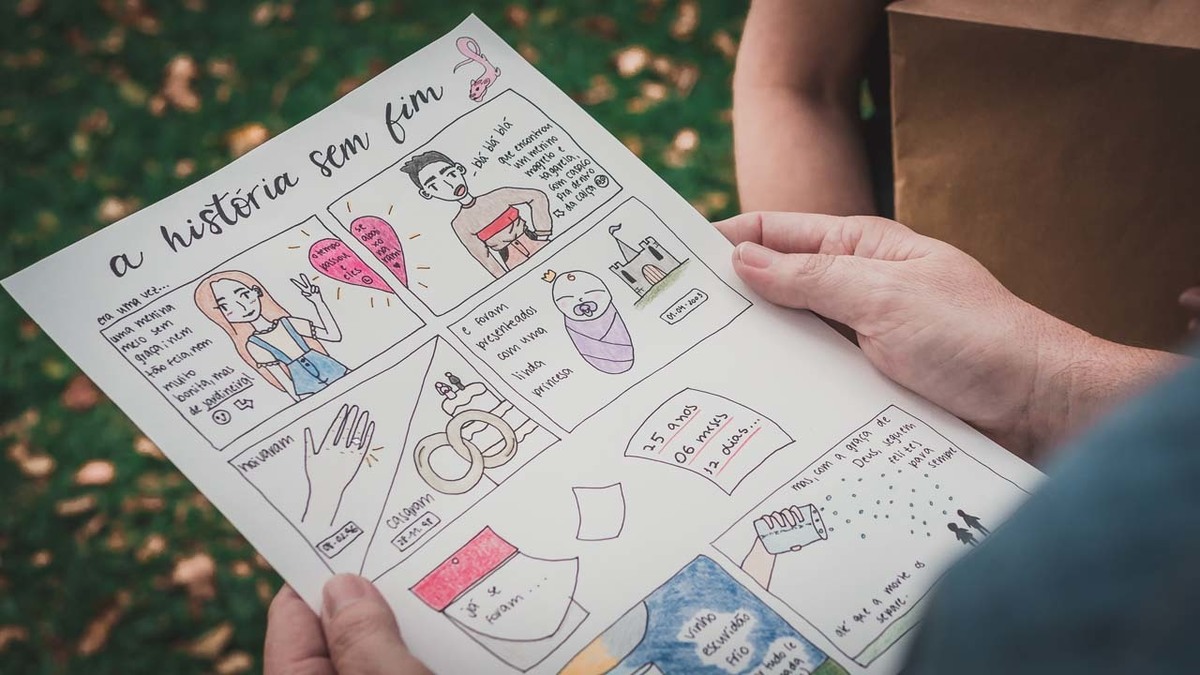 a história sem fim
era uma vez...
uma menina
meio sem
graça, nem
tão feia, nem
muito
bonita, mas
de jardineira!
o tempo
passou e
eles
se
apai
xo
na
ram
blá blá blá
que encontrou
um menino
magrelo e
tagarela,
com casaco
pra dentro
da calça
noivaram
casaram
28.11.98
e foram
presenteados
com uma
linda
princesa
01.04.2003
já se
foram...
25 anos
06 meses
12 dias...
mas, com a graça de
Deus, seguem
felizes
para
sempre
até que a morte os
separe.
vinho
escuridão
frio